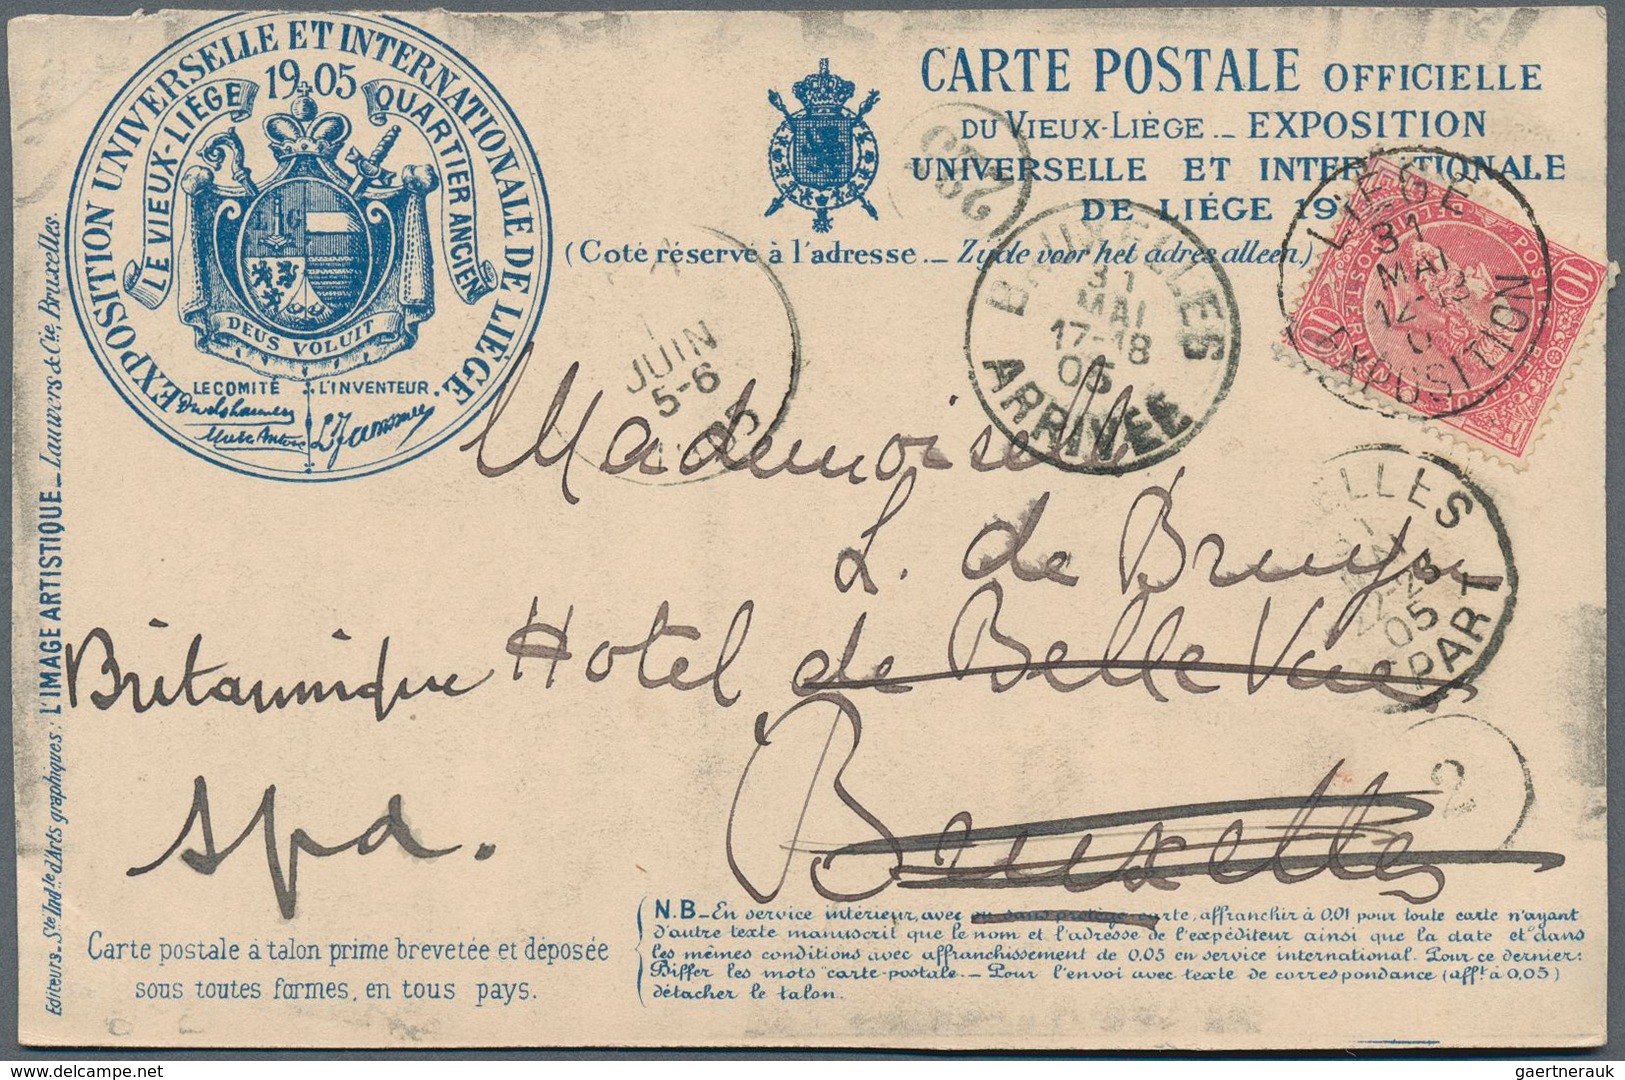 EXPOSITION UNIVERSELLE ET INTERNATIONALE DE LIÈGE
1905
LE VIEUX-LIÈGE QUARTIER ANCIEN
DEUS VOLUIT
LE COMITÉ L'INVENTEUR.
CARTE POSTALE OFFICIELLE
DU VIEUX-LIÈGE._ EXPOSITION
UNIVERSELLE ET INTERNATIONALE
DE LIÉGE 19
(Coté réservé à l'adresse._ Zijde voor het adres alleen.)
LIEGE
31
MAI
12-13
EXPOSITION
10 10
BRUXELLES
31
MAI
17-18
05
ARRIVÉE
JUIN
5-6
05
ELLES
22-23
05
PART
Mademoiselle
L. de Bruyn
Britannique Hotel de Belle Vue
Bruxelles
Spa.
2
Editeurs._ Sté Indle d'Arts graphiques; L'IMAGE ARTISTIQUE._ Lauwers & Cie, Bruxelles.
Carte postale à talon prime brevetée et déposée
sous toutes formes, en tous pays.
N.B_ En service intérieur, avec ou sans protège carte, affranchir à 0,01 pour toute carte n'ayant
d'autre texte manuscrit que le nom et l'adresse de l'expéditeur ainsi que la date et dans
les mêmes conditions avec affranchissement de 0.05 en service international. Pour ce dernier:
Biffer les mots "carte-postale._ Pour l'envoi avec texte de correspondance (afft. à 0,05)
détacher le talon.
gaertnerauk